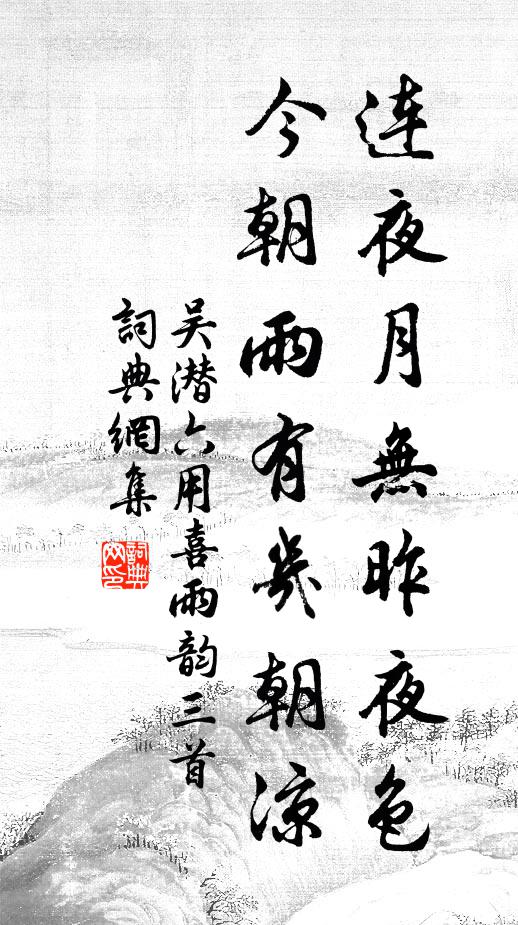 連夜月無昨夜色
今朝雨有幾朝凉
吴潜六用喜雨韵三首
詞典網集
詞典網印